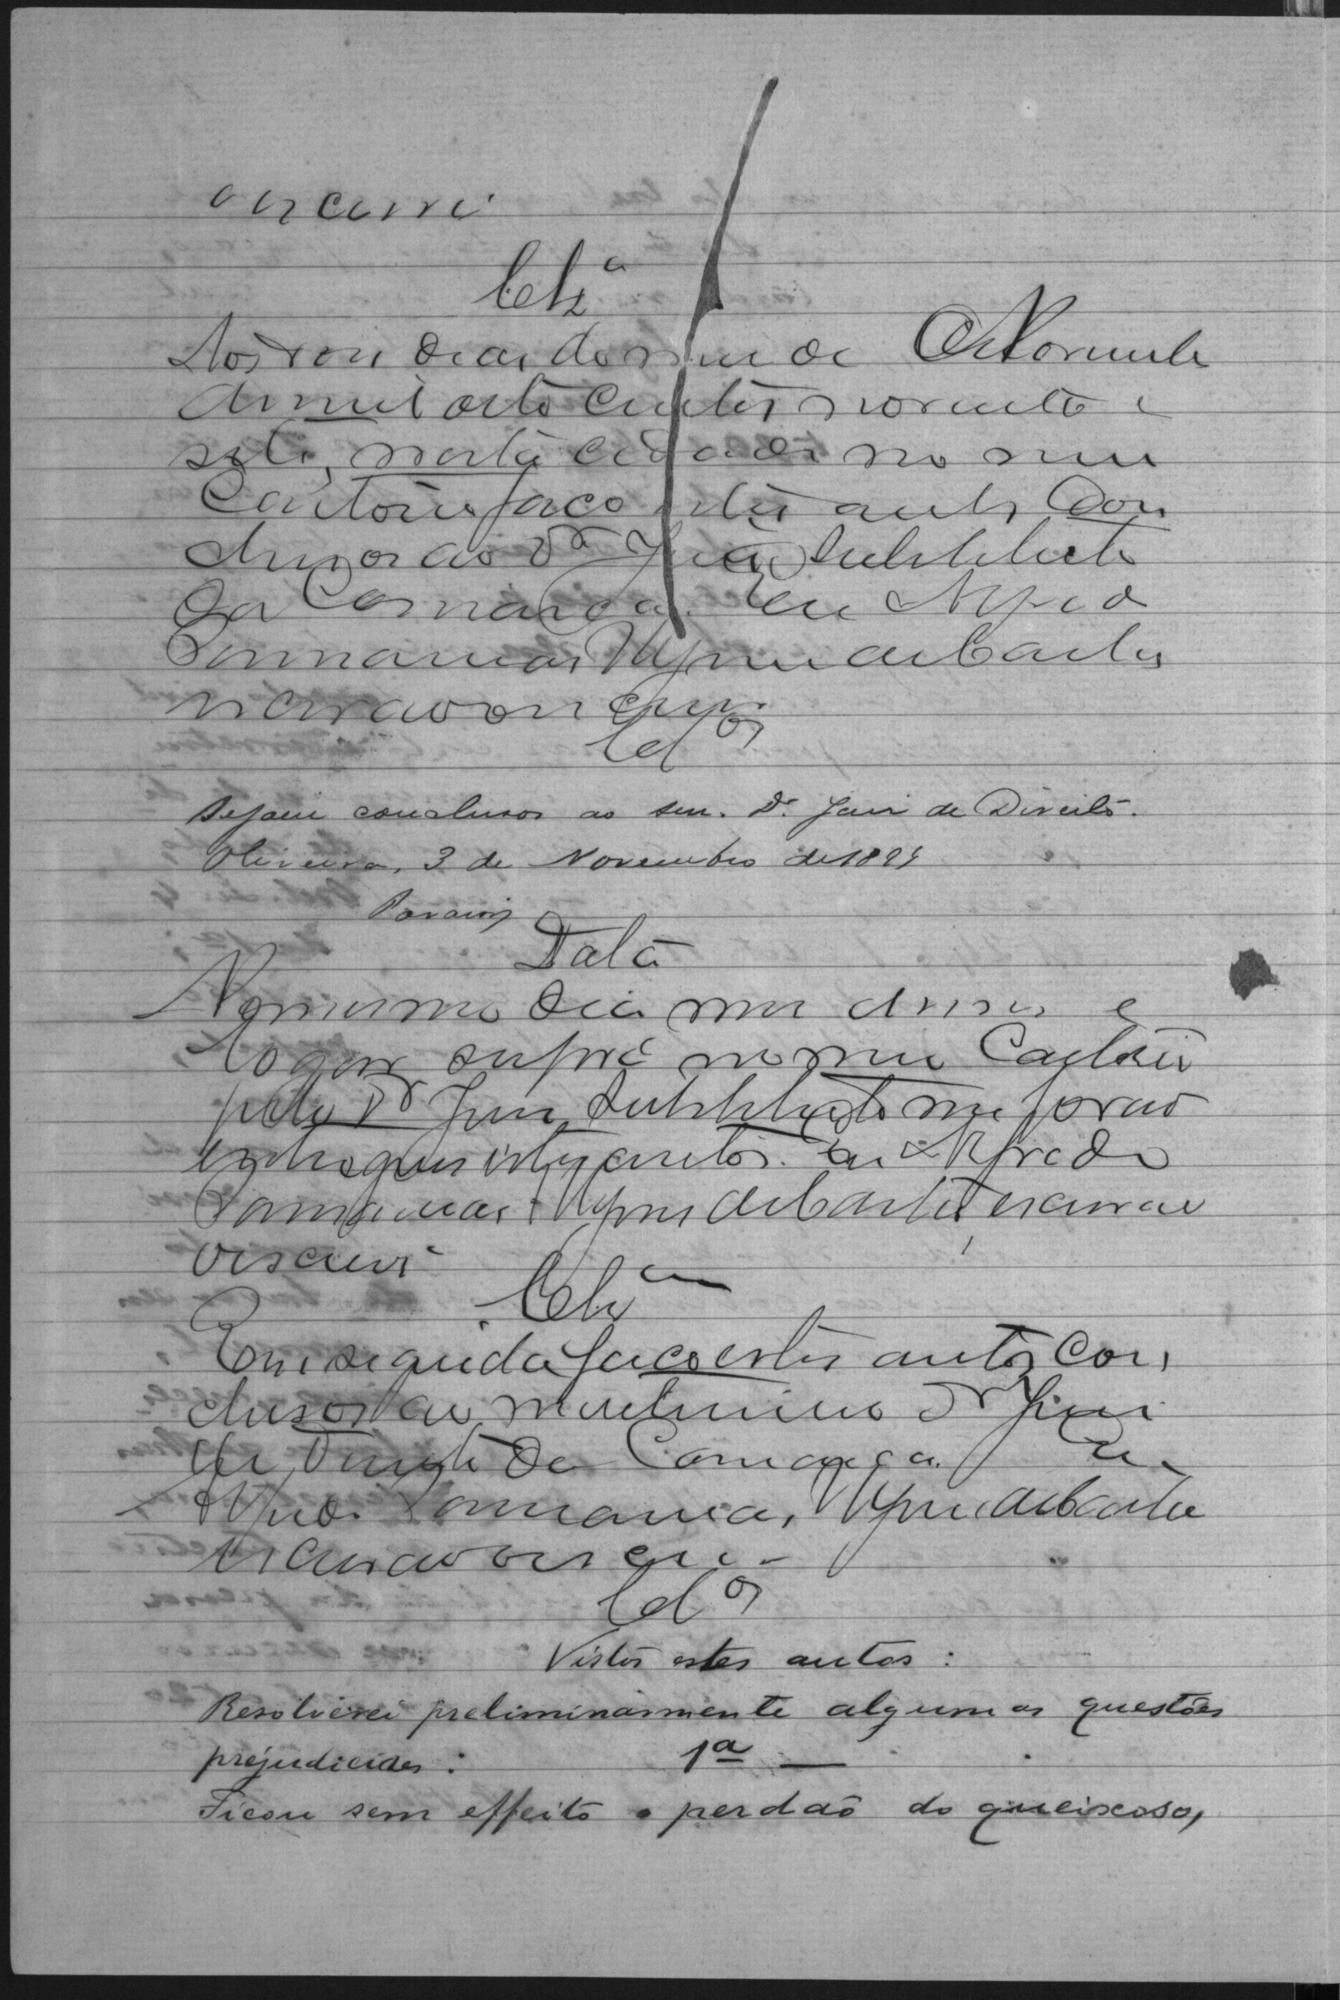 o escrevi
Clzª
Aos dias do mes de Novembro
de mil oito centos noventa e
sete, nesta cidade no meu
Cartorio faço estes autos con
clusos ao Dr Juiz Substituto
da Comarca. Eu Alfredo
de Castro
escrivão o escrevi
Clos
Sejam conclusos ao snr. Dr. Juiz de Direito.
Oliveira, 3 de Novembro de 1897
Data
No mesmo dia mez anno e
logar supra no meu Cartorio
pelo Dr Juiz Substituto me forão
entregues estes autos. Eu Alfredo
de Castro escrivão
o escrevi
Clzam
Em seguida faço estes autos con
clusos ao meritissimo Dr Juiz
de Direito da Comarca. Eu
Alfredo de Castro
escrivão o escrevi
Clos
Vistos estes autos:
Resolverei preliminarmente algumas questões
prejudiciaes: 1ª —
Ficou sem effeito o perdão do queixoso,